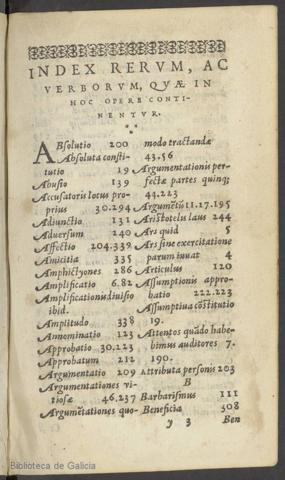 INDEX RERVM, AC
VERBORVM, QVÆ IN
HOC OPERE CONTI-
NENTVR.
ABsolutio 200
Absoluta consti-
tutio 19
Abusio 139
Accusatoris locus pro-
prius 30.294
Adiunctio 131
Aduersum 240
Affectio 204.339
Amicitia 335
Amphictyones 286
Amplificatio 6.82
Amplificationis diuisio
ibid.
Amplitudo 338
Annominatio 123
Approbatio 30.223
Approbatum 212
Argumentatio 209
Argumentationes vi-
tiosæ 46.237
Argumētationes quo-
modo tractandæ
43.56
Argumentationis per-
fectæ partes quinq;
44.223
Argumētū 11.17.195
Aristotelis laus 244
Ars quid 5
Ars sine exercitatione
parum iuuat 4
Articulus 120
Assumptionis appro-
batio 222.223
Assumptiua cōstitutio
19.
Attentos quādo habe-
bimus auditores 7.
190.
Attributa personis 203
B
Barbarismus 111
Beneficia 308
y 3 Ben
Biblioteca de Galicia